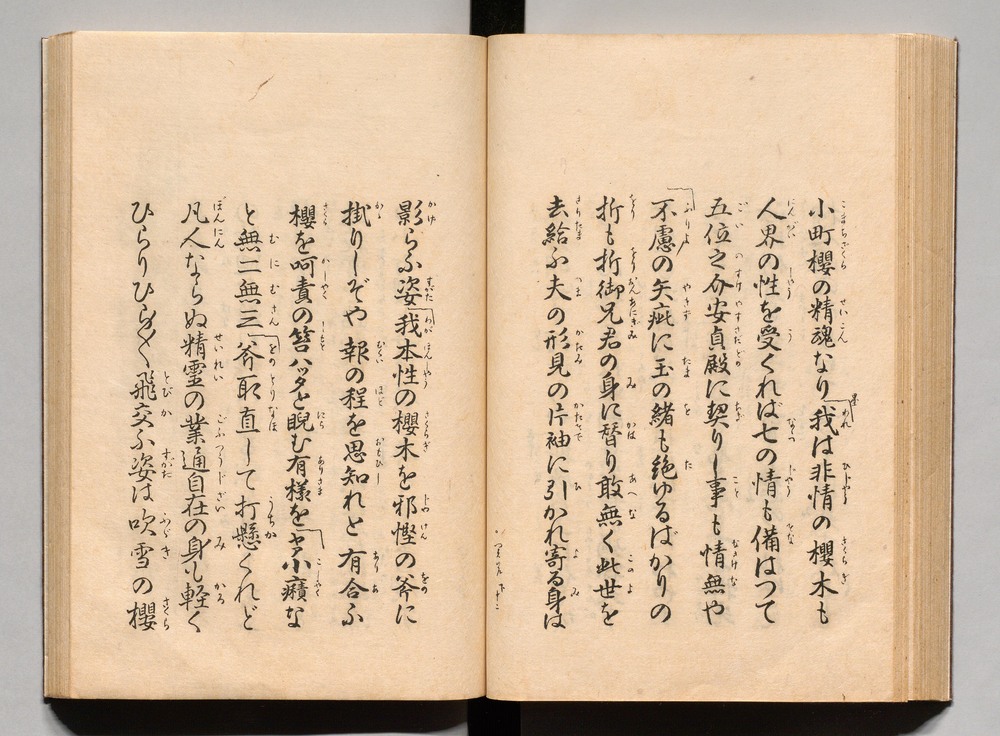 小町櫻の精魂なり「我は非情の櫻木も
人界の性を受くれば七の情も備はつて
五位之介安貞殿に契りし事も情無や
不慮の矢疵に玉の緒も絶ゆるばかりの
折も折御兄君の身に替り敢無く此世を
去給ふ夫の形見の片袖に引かれ寄る身は
影らふ姿「我本性の櫻木を邪慳の斧に
掛りしぞや 報の程を思知れと 有合ふ
櫻を呵責の笞ハッタと睨む有様を「ヤア小癪な
と無二無三「斧取直して打懸くれど
凡人ならぬ精霊の業通自在の身も軽く
ひらりひら〱飛交ふ姿は吹雪の櫻